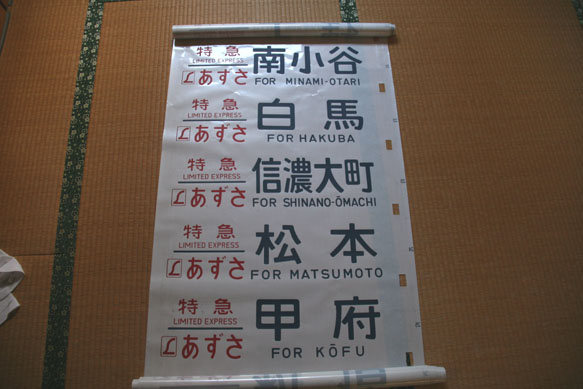 特急 南小谷
LIMITED EXPRESS
L あずさ FOR MINAMI-OTARI
特急 白馬
LIMITED EXPRESS
L あずさ FOR HAKUBA
特急 信濃大町
LIMITED EXPRESS
L あずさ FOR SHINANO-ŌMACHI
特急 松本
LIMITED EXPRESS
L あずさ FOR MATSUMOTO
特急 甲府
LIMITED EXPRESS
L あずさ FOR KŌFU